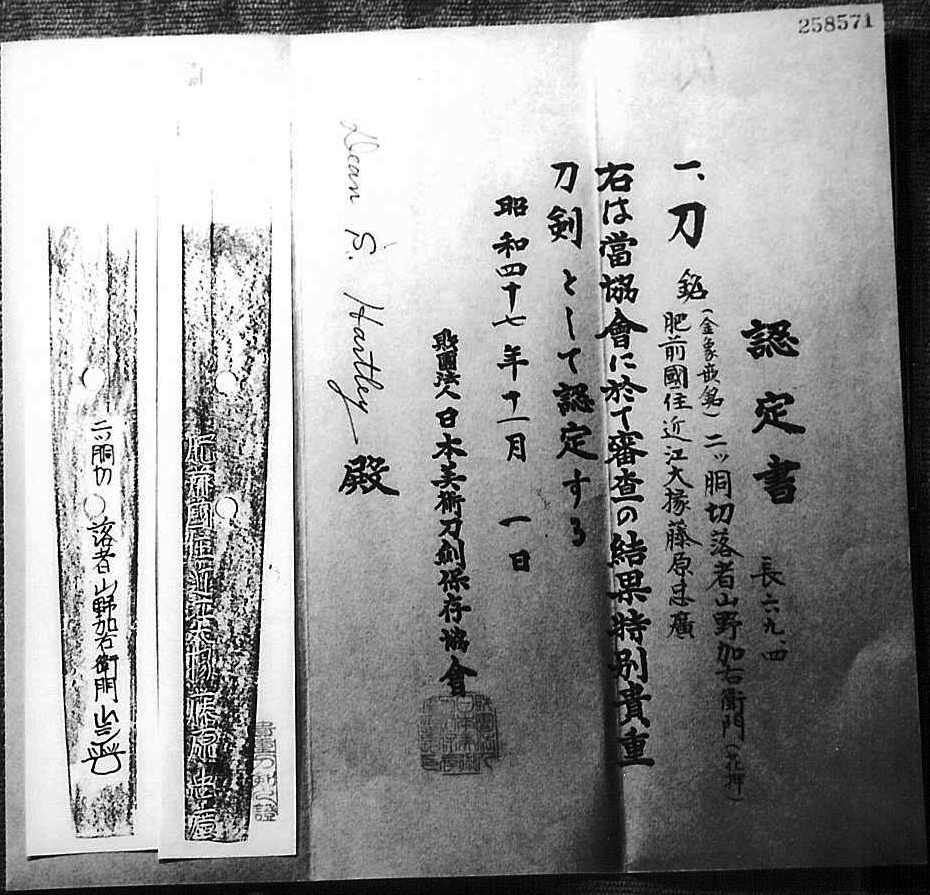 258571
認定書
長六九、四
一、刀 銘(金象嵌銘)二ッ胴切落者山野加右衛門(花押)
肥前國住近江大掾藤原忠廣
右は當協會に於て審査の結果特別貴重
刀劍として認定する
昭和四十七年十一月一日
財團法人日本美術刀劍保存協會
Dean S. Hartley 殿
肥前國住近江大掾藤原忠廣
二ッ胴切 落者山野加右衛門